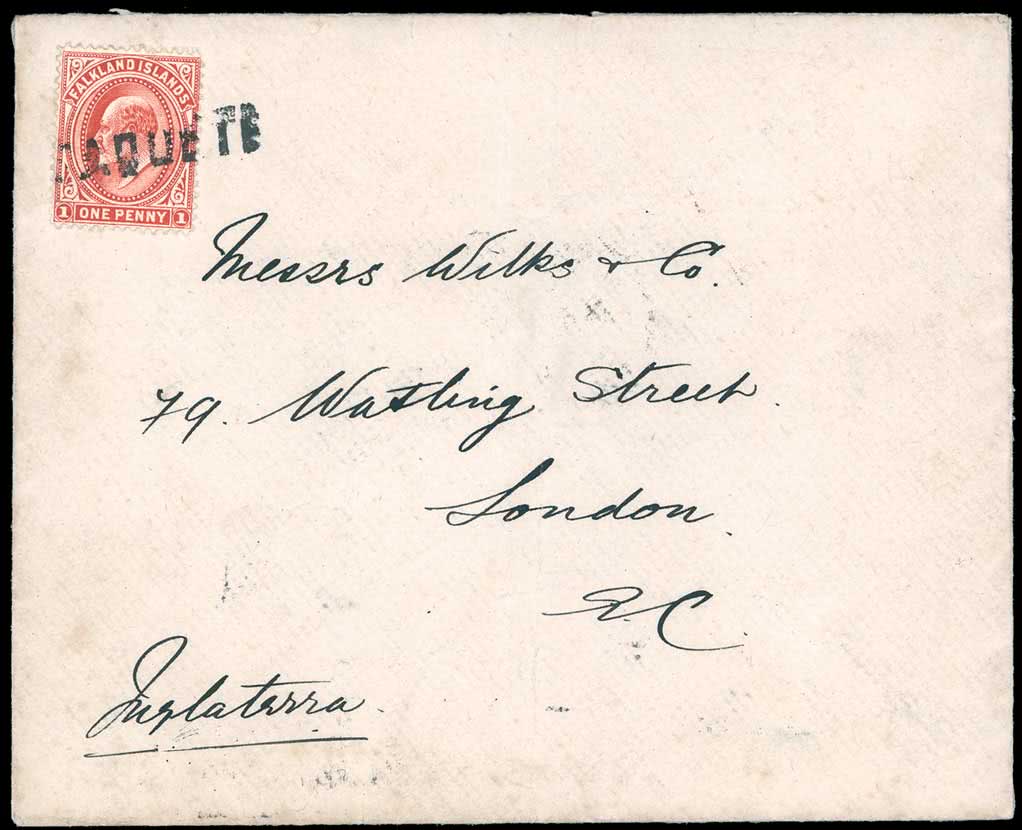 FALKLAND ISLANDS
PAQUETE
1 ONE PENNY 1
Messrs Wilks & Co.
79. Watling Street.
London.
E.C.
Inglaterra.